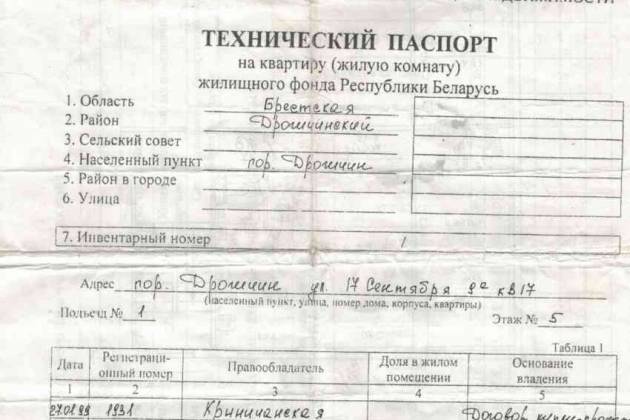 ТЕХНИЧЕСКИЙ ПАСПОРТ
на квартиру (жилую комнату)
жилищного фонда Республики Беларусь
1. Область Брестская
2. Район Дрогичинский
3. Сельский совет
4. Населенный пункт гор. Дрогичин
5. Район в городе
6. Улица
7. Инвентарный номер /
Адрес гор. Дрогичин ул. 17 Сентября 9а кв 17
(населенный пункт, улица, номер дома, корпуса, квартиры)
Подъезд № 1 Этаж № 5
Таблица 1
Дата Регистраци-онный номер Правообладатель Доля в жилом помещении Основание владения
1 2 3 4 5
270199 1931 Криничанская Договор